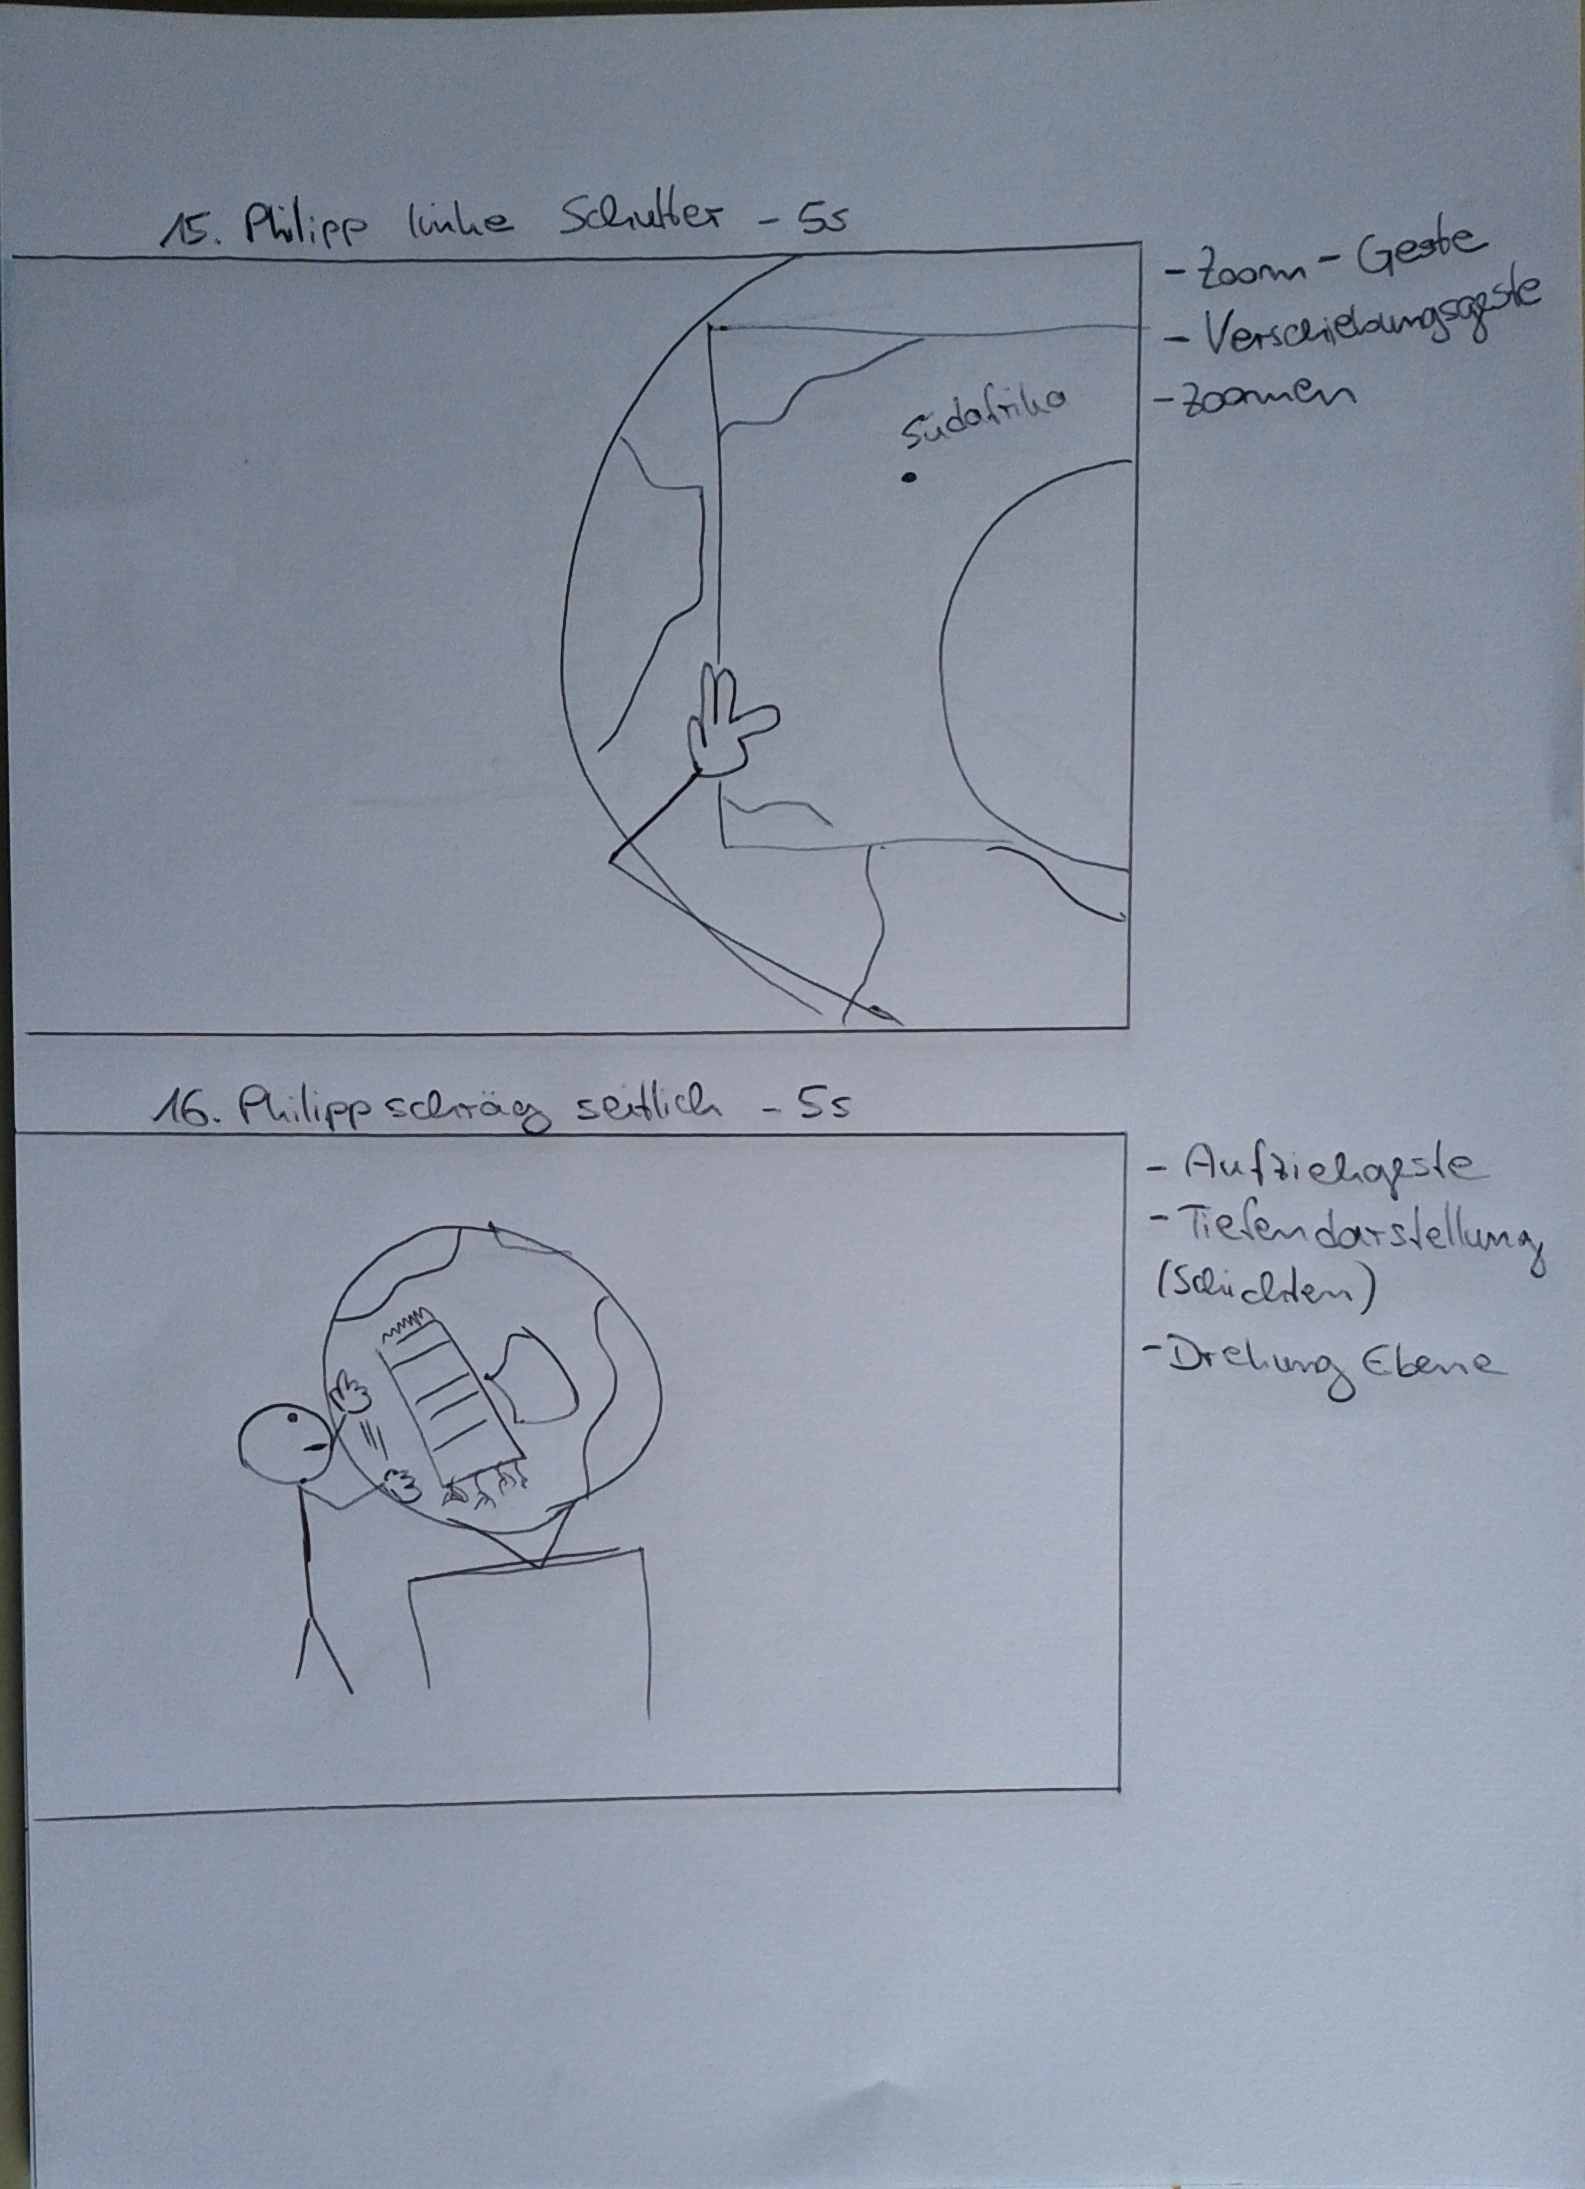 15. Philipp linke Schulter - 5s
- Zoom - Geste
- Verschiebungsgeste
- Zoomen
Südafrika
16. Philipp schräg seitlich - 5s
- Aufziehgeste
- Tiefendarstellung
(Schichten)
- Drehung Ebene